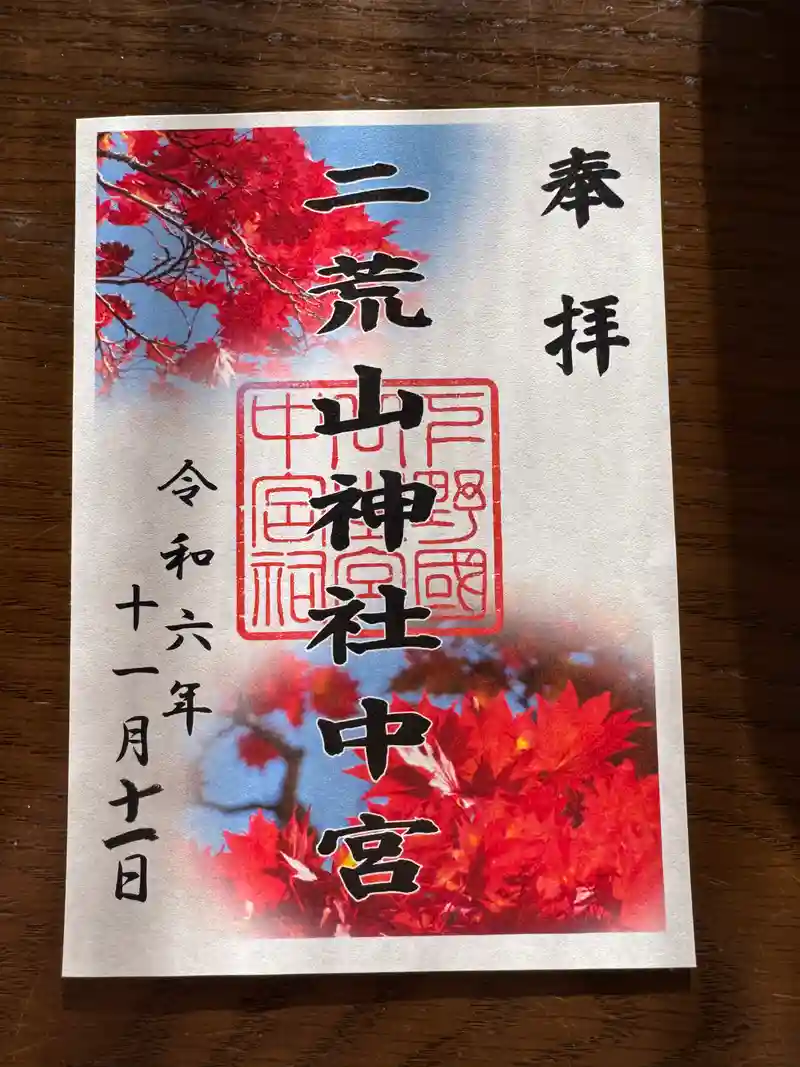 奉拝
二荒山神社中宮
下野國
二荒山神社中宮祠
令和六年
十一月十一日